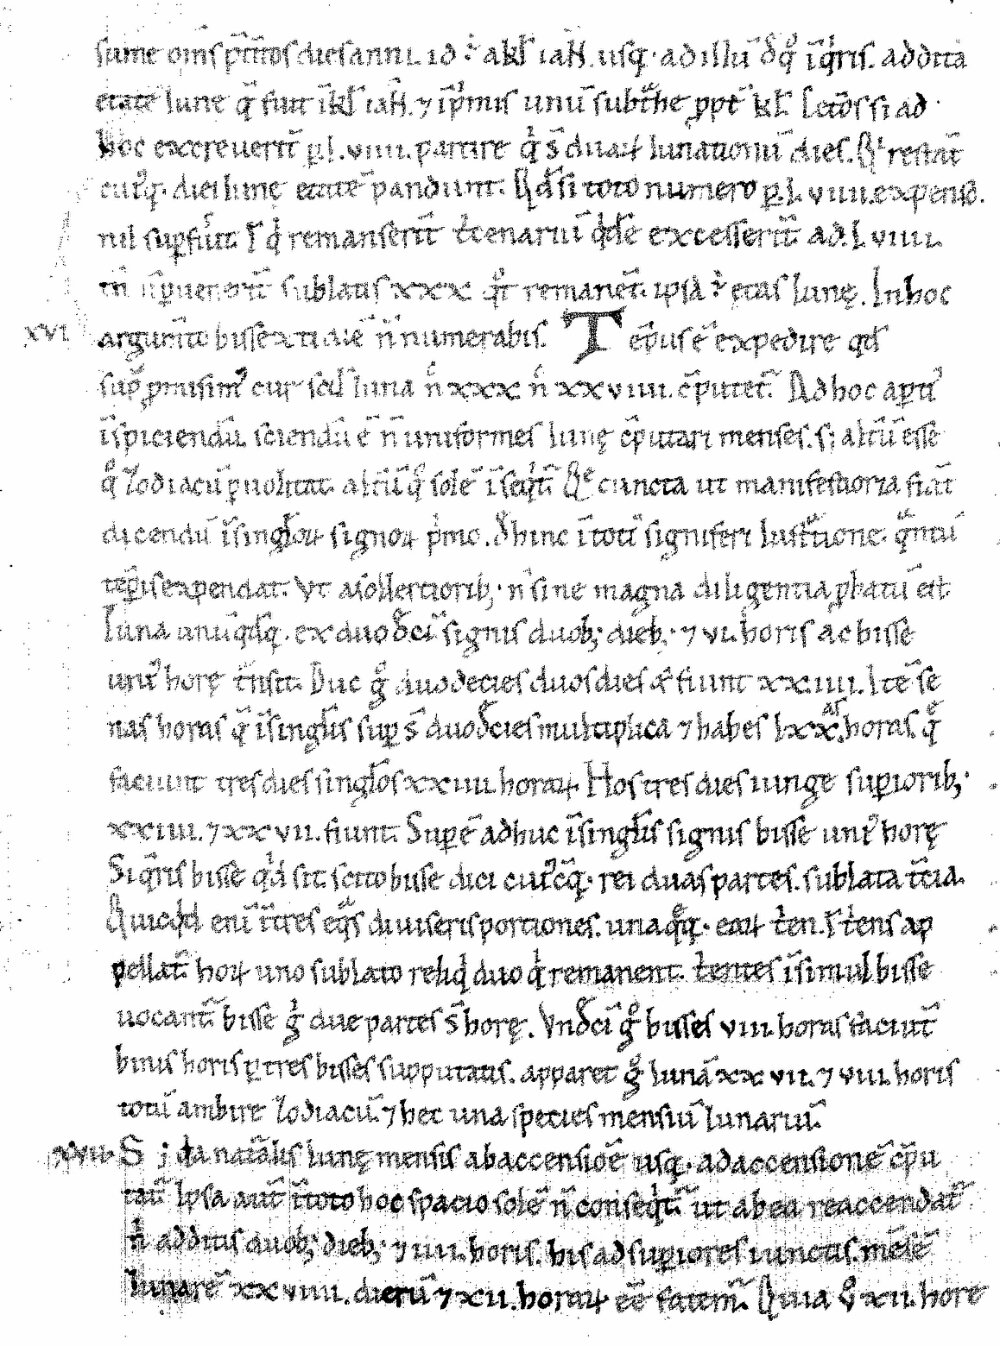 sume om̄s p̄t̄itos dies anni. id ÷ a kl̄ iañ. usq; ad illū d̄ q° īq̄ris. addita
etate lune q̄ fuit ī kl̄ iañ. ⁊ īp̄mis unū subt̄he ꝓpt̄ kl̄ Si ad
hoc excreuerit̄ ꝑ .l.viiii. partire q̇ s̄ duaꝝ lunationū dies. Q' restāt
cuiꝰq; diei lunę etatē pandunt. Qd̄ si toto numero ꝑ .L.viiii. expenso.
nil suꝑfūit. S; q̇ remanserīt t̄cenariū excesserīt ad .L.viiii.
tn̄ n̄ ꝑuenerīt sublatis xxx qͦt remanēt. ipsa ÷ ętas lunę. In hoc
XVI argum̄to bissexti diē n̄ numerabis. Tēpus ē expedire qd̄
suꝑ ꝓmisimꝰ cur scil̄ luna n̄ xxx n̄ xxviiii. c̄putet̄. Ad hoc aꝑtiꝰ
īspiciendū. sciendū ē n̄ uniformes lunę c̄putari menses. s; altū esse
q° Zodiacū ꝑuolitat. altū q° solē īseq̇t̄ Qͤ cuncta ut manifestiora fiāt
dicendū ī singl̄oꝝ signoꝝ p̄mo. dͤhinc ī toti signiferi lust̄tione. q̄ntū
tēpis expendat. Vt a sollertiorib; n̄ sine magna diligentia ꝓbatū est
Luna unū q̄dq; ex duodͤci signis duob; dieb; ⁊ vi. horis ac bisse
uniꝰ horę t̄nsit. Duc g° duodecies duos dies & fiunt xxiiii. Itē se
nas horas q̄ ī singl̄is suꝑ s̄ duodͤcies multiplica ⁊ habes lxx.as horas. q°
faciunt tres dies singl̄os xxiiii. horaꝝ Hos tres dies iunge suꝑiorib;
xxiiii. ⁊ xxvii. fiunt. Supē adhuc ī singl̄is signis bisse uniꝰ horę
Si q̄ris bisse q̇d sit scito bisse dici cuiꝰcq; rei duas partes. sublata t̄cia.
Quicqd̄ enī ī tres eq̄s diuiseris portiones. una q̄q; eaꝝ t̄en. s; t̄ens ap
pellat̄. hoꝝ uno sublato reliq̇ duo q̇ remanent. t̄entes īsimul bisse
uocant̄. bisse g° due partes s̄ horę. Vndͤci g° bisses viii. horas faciūt
binis horis ꝑ tres bisses supputatis. apparet g° lunā xxvii. ⁊ viii. horis
totū ambire Zodiacū. ⁊ hec una species mensiū lunariū.
xvii. S; q̇a natal̄is lunę mensis ab accensiōe usq; ad accensionē c̄pu
tat̄. Ipsa aut̄ ī toto hoc spacio solē n̄ conseq̇t̄. ut ab ea reaccendat̄
n̄ additis duob; dieb; ⁊ iiii. horis. his ad suꝑiores iunctis. mēsē
lunarē xxviiii. dierū ⁊ xii. horaꝝ eē fatem̄. Quia xii. hore